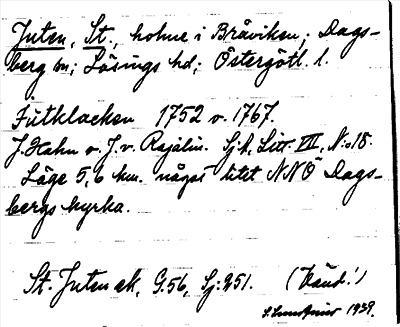 Juten, St., holme i Bråviken; Dags-
berg sn; Lösings hd; Östergötl. l.
Jutklacken 1752 o. 1767.
J. Hahn o. J. v. Rajalin. Sj.k, Litt. VII, N:o 18.
Läge 5,6 km. något litet NNÖ Dags-
bergs kyrka.
St. Juten ek, G.56, Sj:251. (Vänd!)
1939.